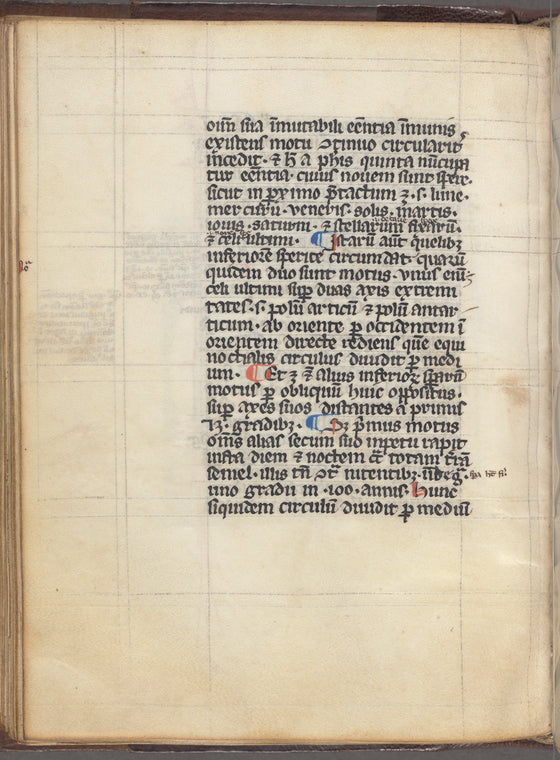 oim̄ sua īmutabili eēntia īmunis
existens motu ꝯtinuo circularit̄
incedit · ⁊ h̄ a ph̄is quinta nūcupa
tur eēntia · cuius nouem sunt sper̄e ·
sicut in ꝓximo p̄tactum ꝫ · s · lune ·
mercurii · veneris · solis · martis ·
iouis · saturni · ⁊ stellarum fixarū ·
⁊ celi ultimi · ¶ Istarū aūt quelibꝫ
inferiorē sperice circumdat · quarū
quidem duo sunt motus · vnus eiu᷒
celi ultimi suꝑ duas axis extremi
tates · s · polū articū ⁊ polū antar
ticum · ab oriente ꝑ occidentem ī
orientem directe rediens que᷒ equi
noctialis circulus diuidit ꝑ medi
um · ¶ Et ꝫ ⁊ alius inferioꝝ sperarū
motus ꝑ obliquū huic oppositus ·
suꝑ axes suos distantes a primis
23 · gradibꝫ · ¶ Sꝫ p̄mus motus
om̄s alias secum suo inpetu rapit
infra diem ⁊ noctem c̄c̄ totam t̄rā
semel · illis tn̄ ꝯt̄ nitentibꝫ ·
uno gradu in · 100 · annis · Hunc
siquidem circulū diuidit ꝑ mediū